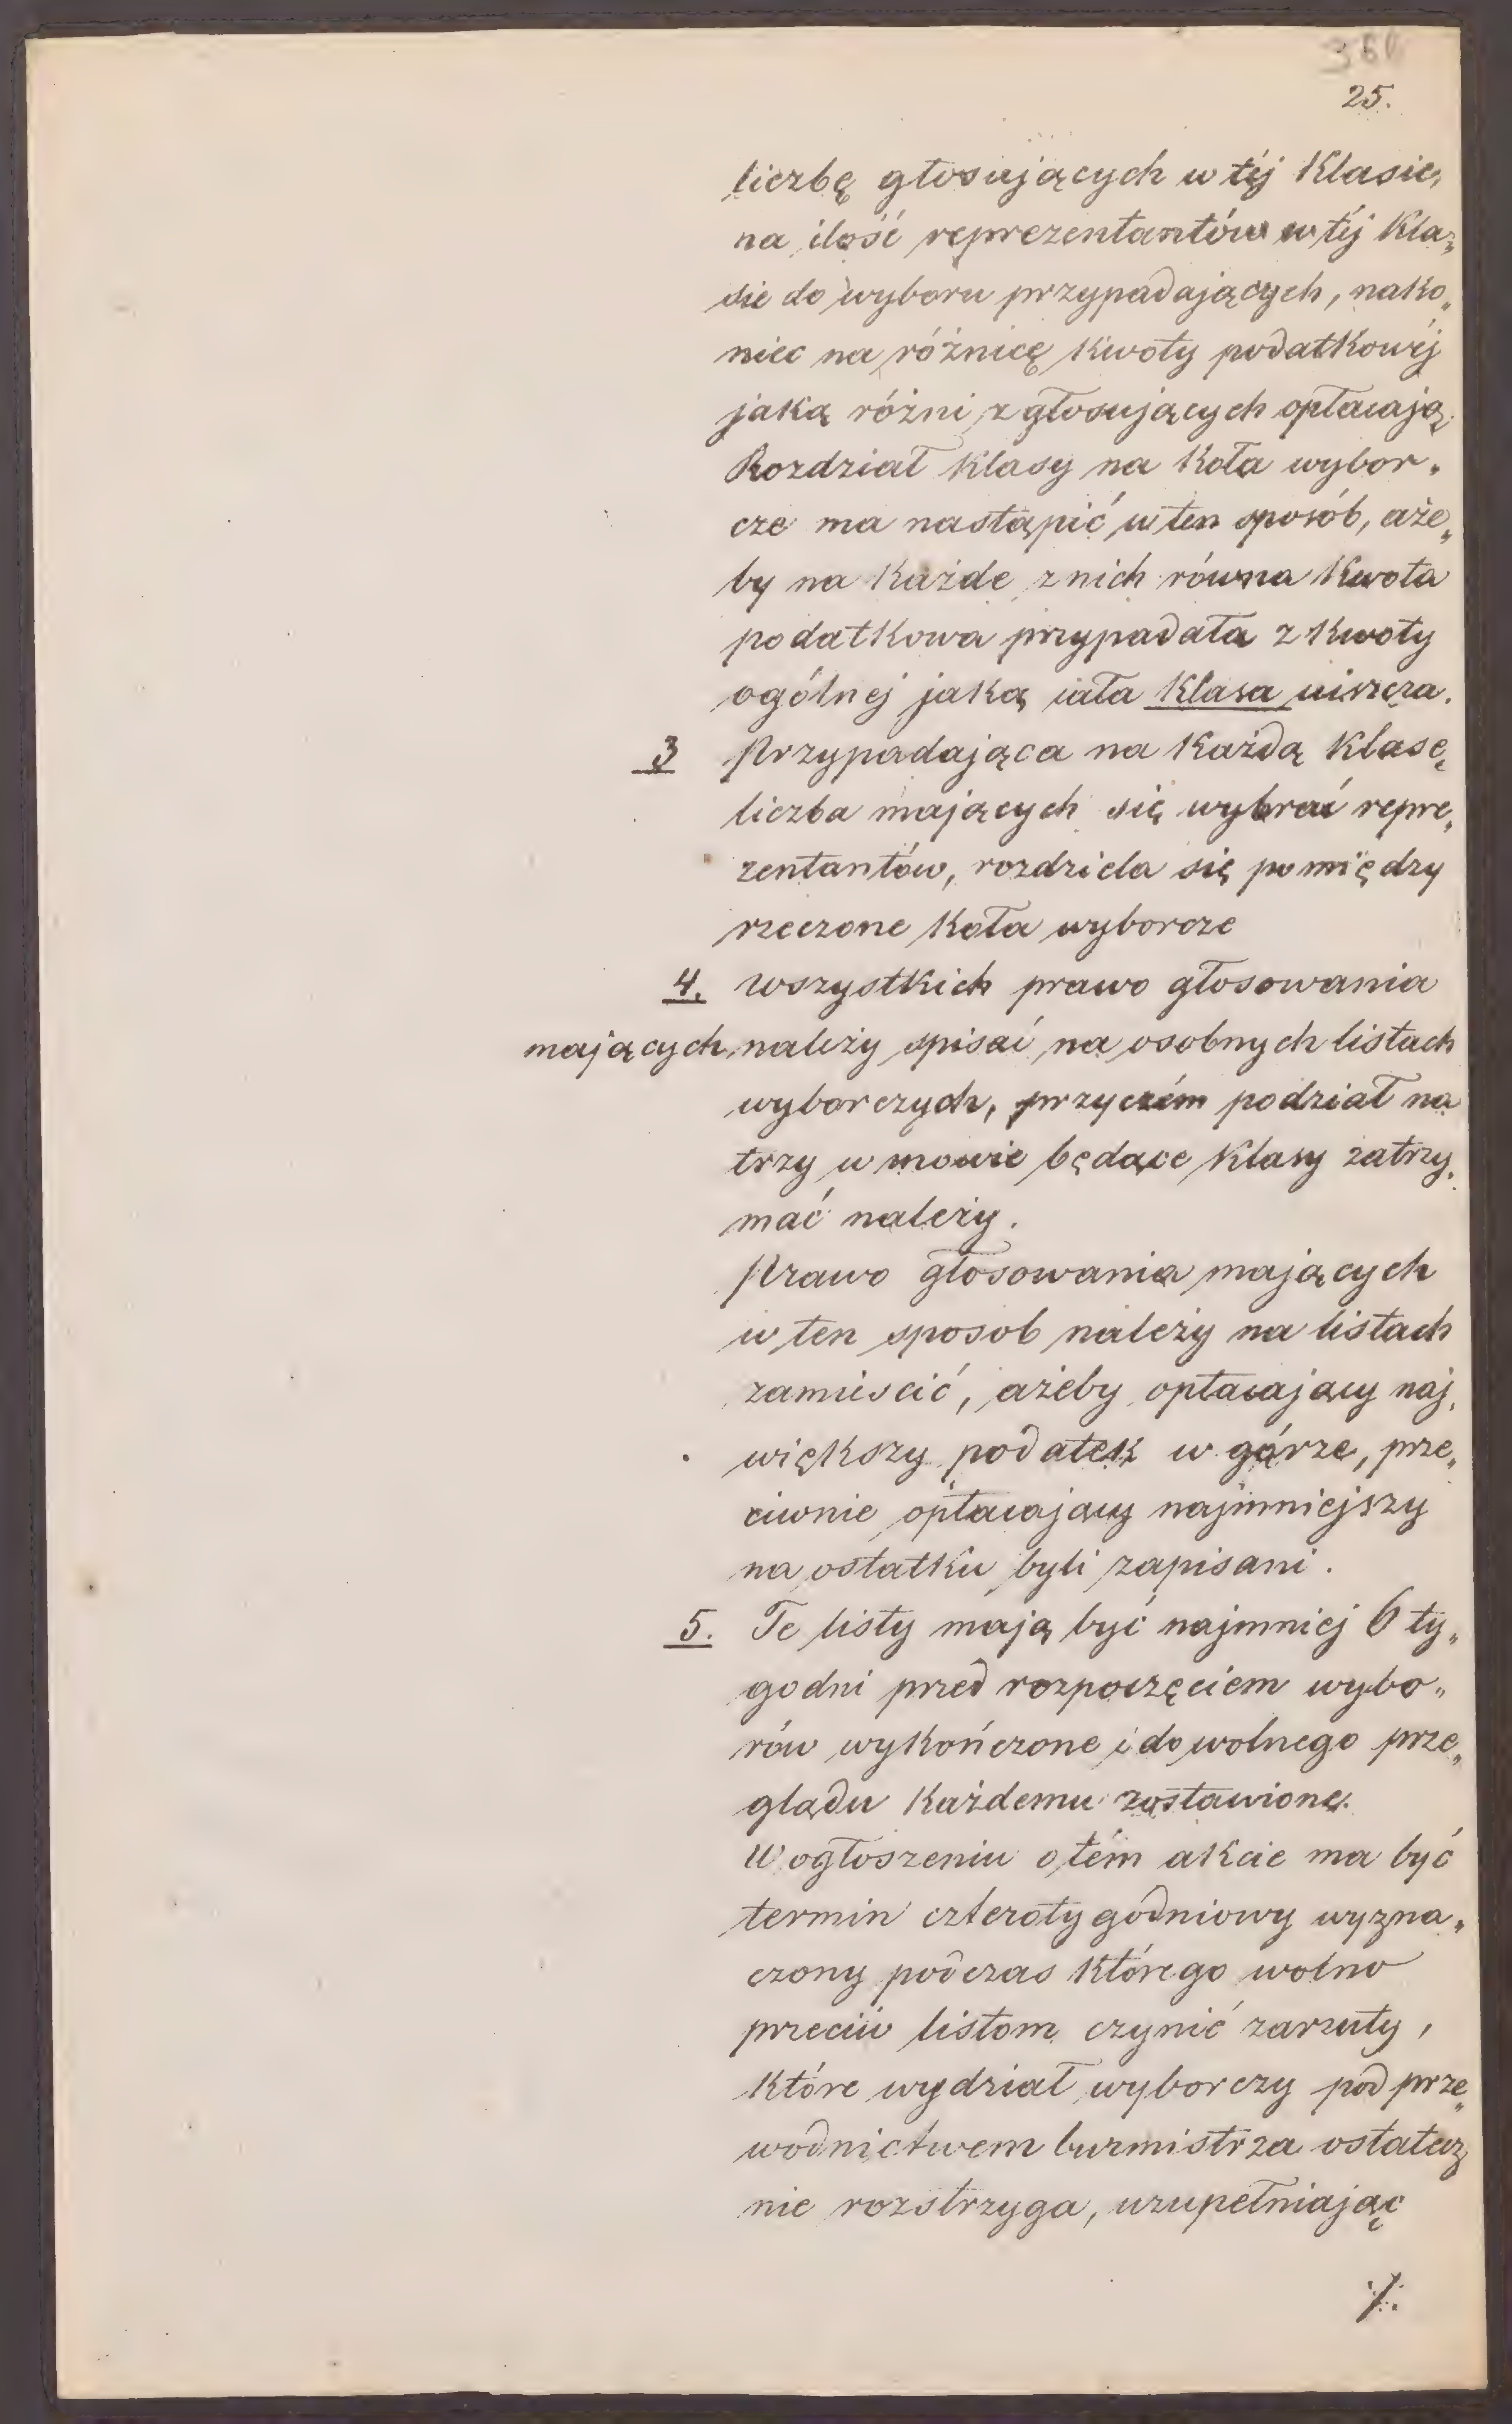 25.
liczbę głosujących w téj Klasie,
na ilość reprezentantów w téj Kla„
sie do wyboru przypadających, nako„
niec na różnicę Kwoty podatkowéj
jaką różni z głosujących opłacają.
Rozdział Klasy na Koła wybor„
cze ma nastąpić w ten sposób, aże„
by na Każde z nich równa Kwota
podatkowa przypadała z Kwoty
ogólnej jaką cała Klasa uiszcza.
3 Przypadająca na Każdą Klasę
liczba mających się wybrać repre„
zentantów, rozdziela się pomiędzy
rzeczone Koła wyborcze
4. wszystkich prawo głosowania
mających, należy spisać na osobnych listach
wyborczych, przyczém podział na
trzy w mowie będące Klasy zatrzy„
mać należy.
Prawo głosowania mających
w ten sposob należy na listach
zamiescić, ażeby opłacający naj„
większy podatek w górze, prze„
ciwnie opłacający najmniejszy
na ostatku byli zapisani.
5. Te listy mają być najmniej 6 ty„
godni przed rozpoczęciem wybo„
rów wykończone i do wolnego prze„
glądu Każdemu zostawione.
W ogłoszeniu o tém akcie ma być
termin czterotygodniowy wyzna„
czony podczas którego wolno
przeciw listom czynić zarzuty,
Które wydział wyborczy pod prze„
wodnictwem burmistrza ostatecz
nie rozstrzyga, uzupełniając
./.